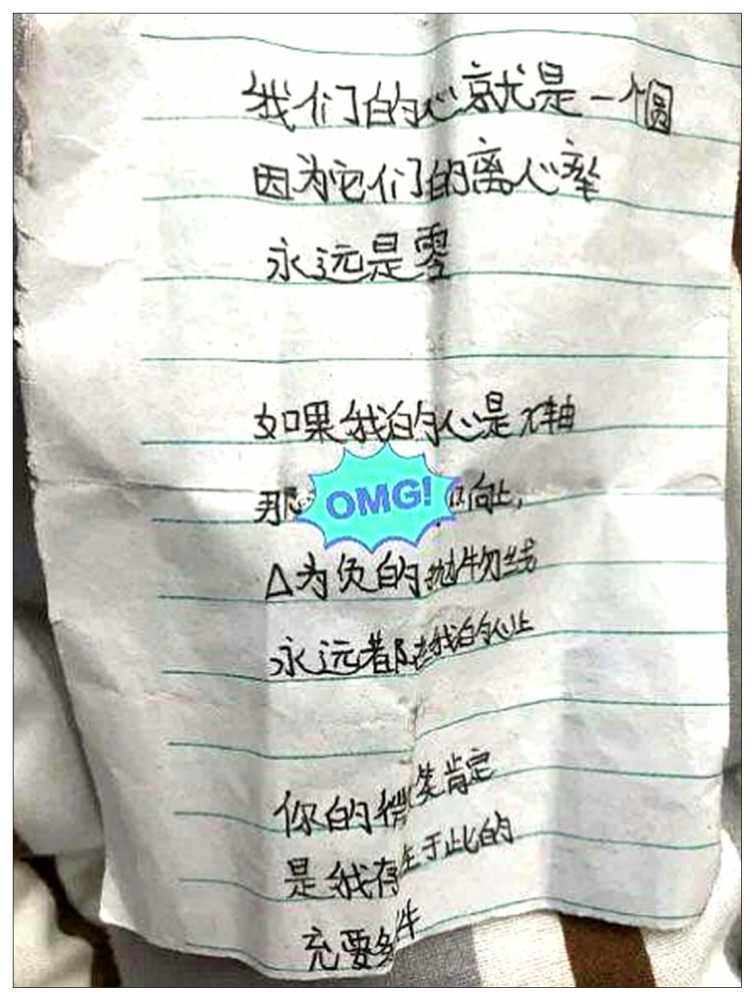 我们的心就是一个圆
因为它们的离心率
永远是零
如果我的心是x轴
那 OMG! 口向上,
Δ为负的抛物线
永远都在我的心上
你的微笑肯定
是我存在于此的
充要条件